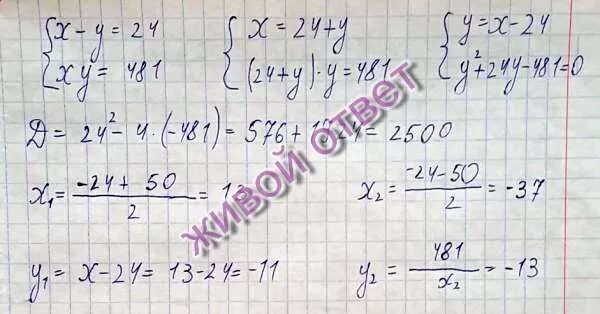 {x - y = 24   {x = 24 + y   {y = x - 24
{xy = 481   {(24 + y) · y = 481   {y² + 24y - 481 = 0
D = 24² - 4 · (-481) = 576 + 1924 = 2500
x₁ = (-24 + 50)/2 =   x₂ = (-24 - 50)/2 = -37
y₁ = x - 24 = 13 - 24 = -11   y₂ = 481/x₂ = -13
ЖИВОЙ ОТВЕТ